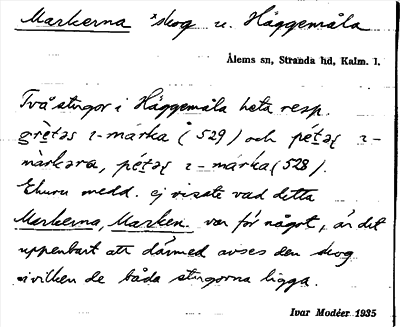 Markerna skog u. Häggemåla
Ålems sn, Stranda hd, Kalm. l.
Två stugor i Häggemåla heta resp.
grètəs ɩ-márka (529) och pétəʂ ɩ-
màrkəra, pétəʂ ɩ-márka (528).
Ehuru medd. ej visste vad detta
Markerna, Marken. var för något, är det
uppenbart att därmed avses den skog
i vilken de båda stugorna ligga.
Ivar Modéer 1935